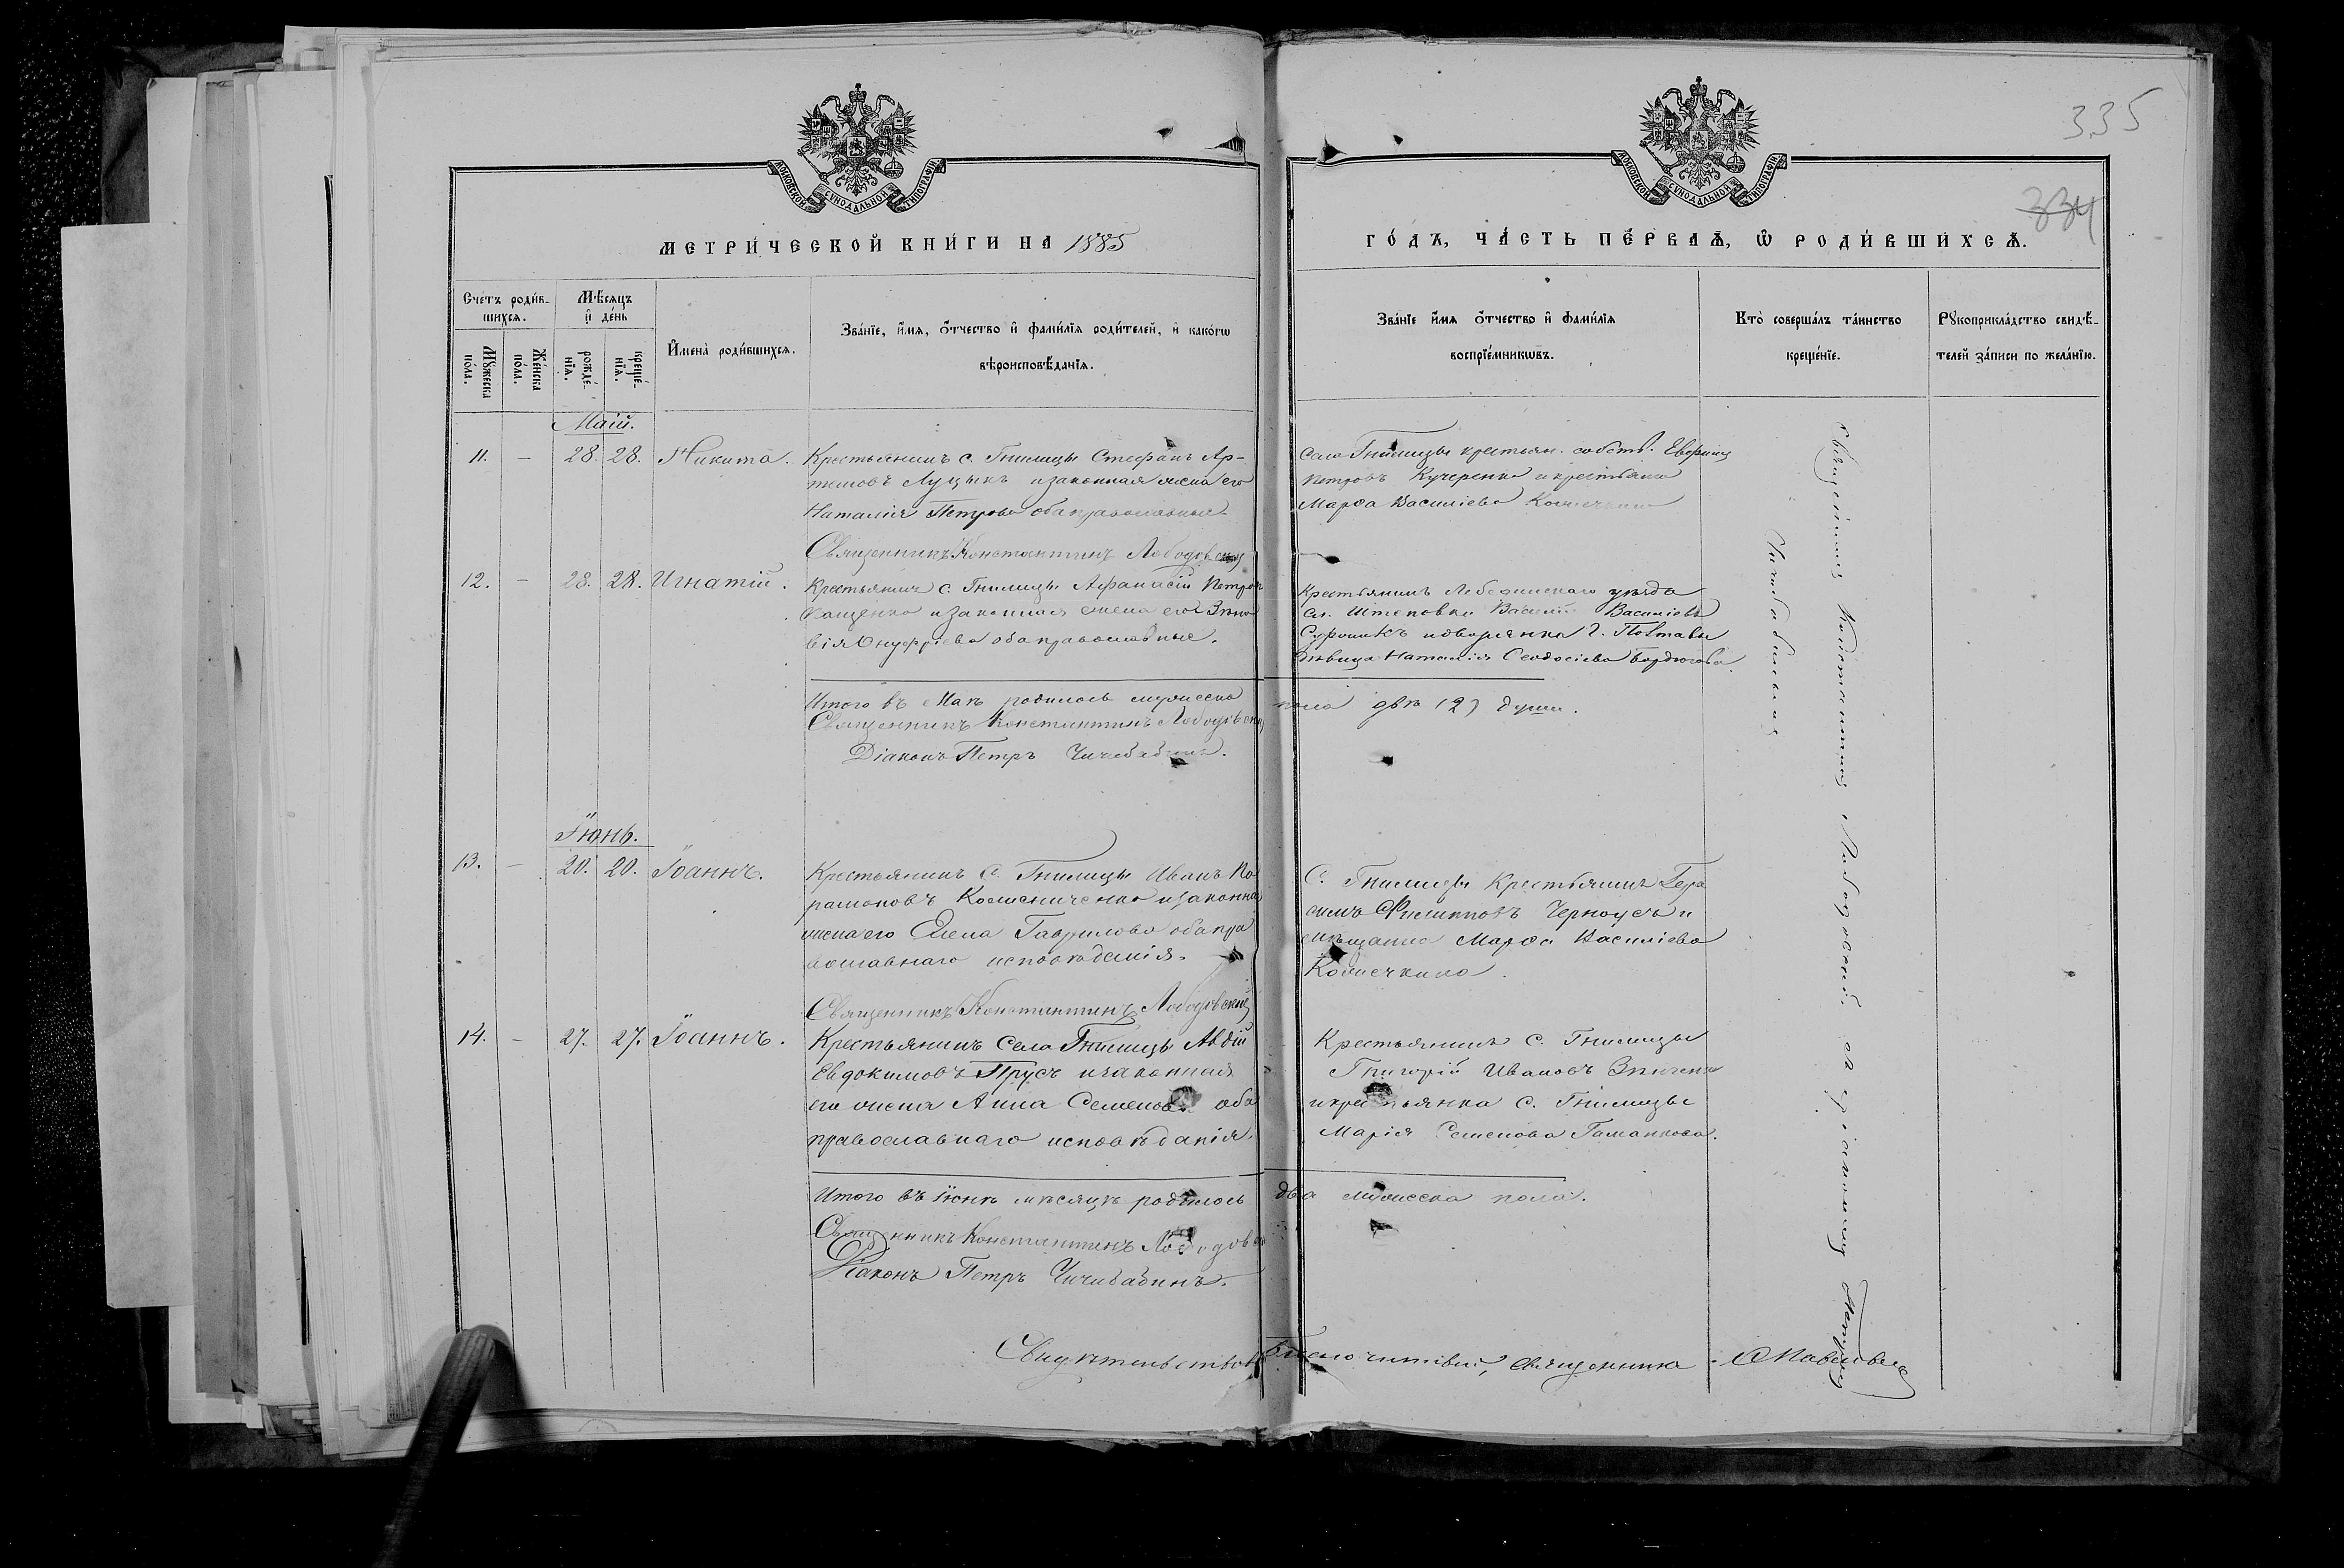 335
334
МОСКОВСКОЙ СѴНОДАЛЬНОЙ ТИПОГРАФІИ
МОСКОВСКОЙ СѴНОДАЛЬНОЙ ТИПОГРАФІИ
МЕТРИ́ЧЕСКОЙ КНИ́ГИ НА 1885
ГО́ДЪ, ЧА́СТЬ ПЕ́РВАѦ, Ѽ РОДИ́ВШИХСѦ.
Сче́тъ роди́в-
шихсѧ.
Мꙋ́жеска
по́ла.
Же́нска
по́ла.
Мѣ́сѧцъ
и҆ де́нь
рожде́-
нїѧ.
креще́-
нїѧ.
И҆мена̀ роди́вшихсѧ.
Зва́нїе, и҆́мѧ, ѻ҆́тчество и҆ фами́лїѧ роди́телей, и҆ како́гѡ
вѣроисповѣ́данїѧ.
Зва́нїе и҆́мѧ ѻ҆́тчество и҆ фами́лїѧ
воспрїе́мникѡвъ.
Кто̀ соверша́лъ та́инство
креще́нїе.
Рꙋкоприкла́дство свидѣ́-
телей за́писи по жела́нїю.
Маій.
11. – 28. 28. Никита. Крестьянинъ с. Гнилицы Стефанъ Ар-
темовъ Луцыкъ и законная жена его
Наталія Петрова оба православные.
Села Гнилицы крестьян. собств.
Петровъ Кучеренко и крестьянка
Марѳа Василіева
Священникъ Константинъ Лободовскій
12. – 28. 28. Игнатій. Крестьянинъ с. Гнилицы Афанасій Петровъ
и законная жена его Зино
вія Онуфріева оба православные.
Крестьянинъ Лебединскаго уѣзда
сл. Штеповки Василій Василіевъ
и дворянка г. Полтавы
дѣвица Наталія Ѳеодосіева
Итого въ Маѣ родилось мужеска пола двѣ (2) души.
Священникъ Константинъ Лободовскій
Діаконъ Петръ Чичибабинъ.
Іюнь.
13. – 20. 20. Іоаннъ. Крестьянинъ с. Гнилицы Иванъ Па
рамоновъ Колесниченко и законная
жена его Елена Гаврилова оба пра
вославнаго исповѣданія.
С. Гнилицы Крестьянинъ Гера
симъ Филипповъ Черноусъ и
мѣщанка Марѳа Василіева
Священникъ Константинъ Лободовскій
14. – 27. 27. Іоаннъ. Крестьянинъ Села Гнилицы Авдій
Евдокимовъ Прусъ и законная
его жена Анна Семенова оба
православнаго исповѣданія.
Крестьянинъ с. Гнилицы
Григорій Ивановъ
и крестьянка с. Гнилицы
Марія Семенова
Итого въ Іюнѣ мѣсяцѣ родилось два мужеска пола.
Священникъ Константинъ Лободовскій
Діаконъ Петръ Чичибабинъ.
Священникъ Константинъ Лободовскій съ діакономъ Петромъ
Чичибабинымъ
Священника Павлов